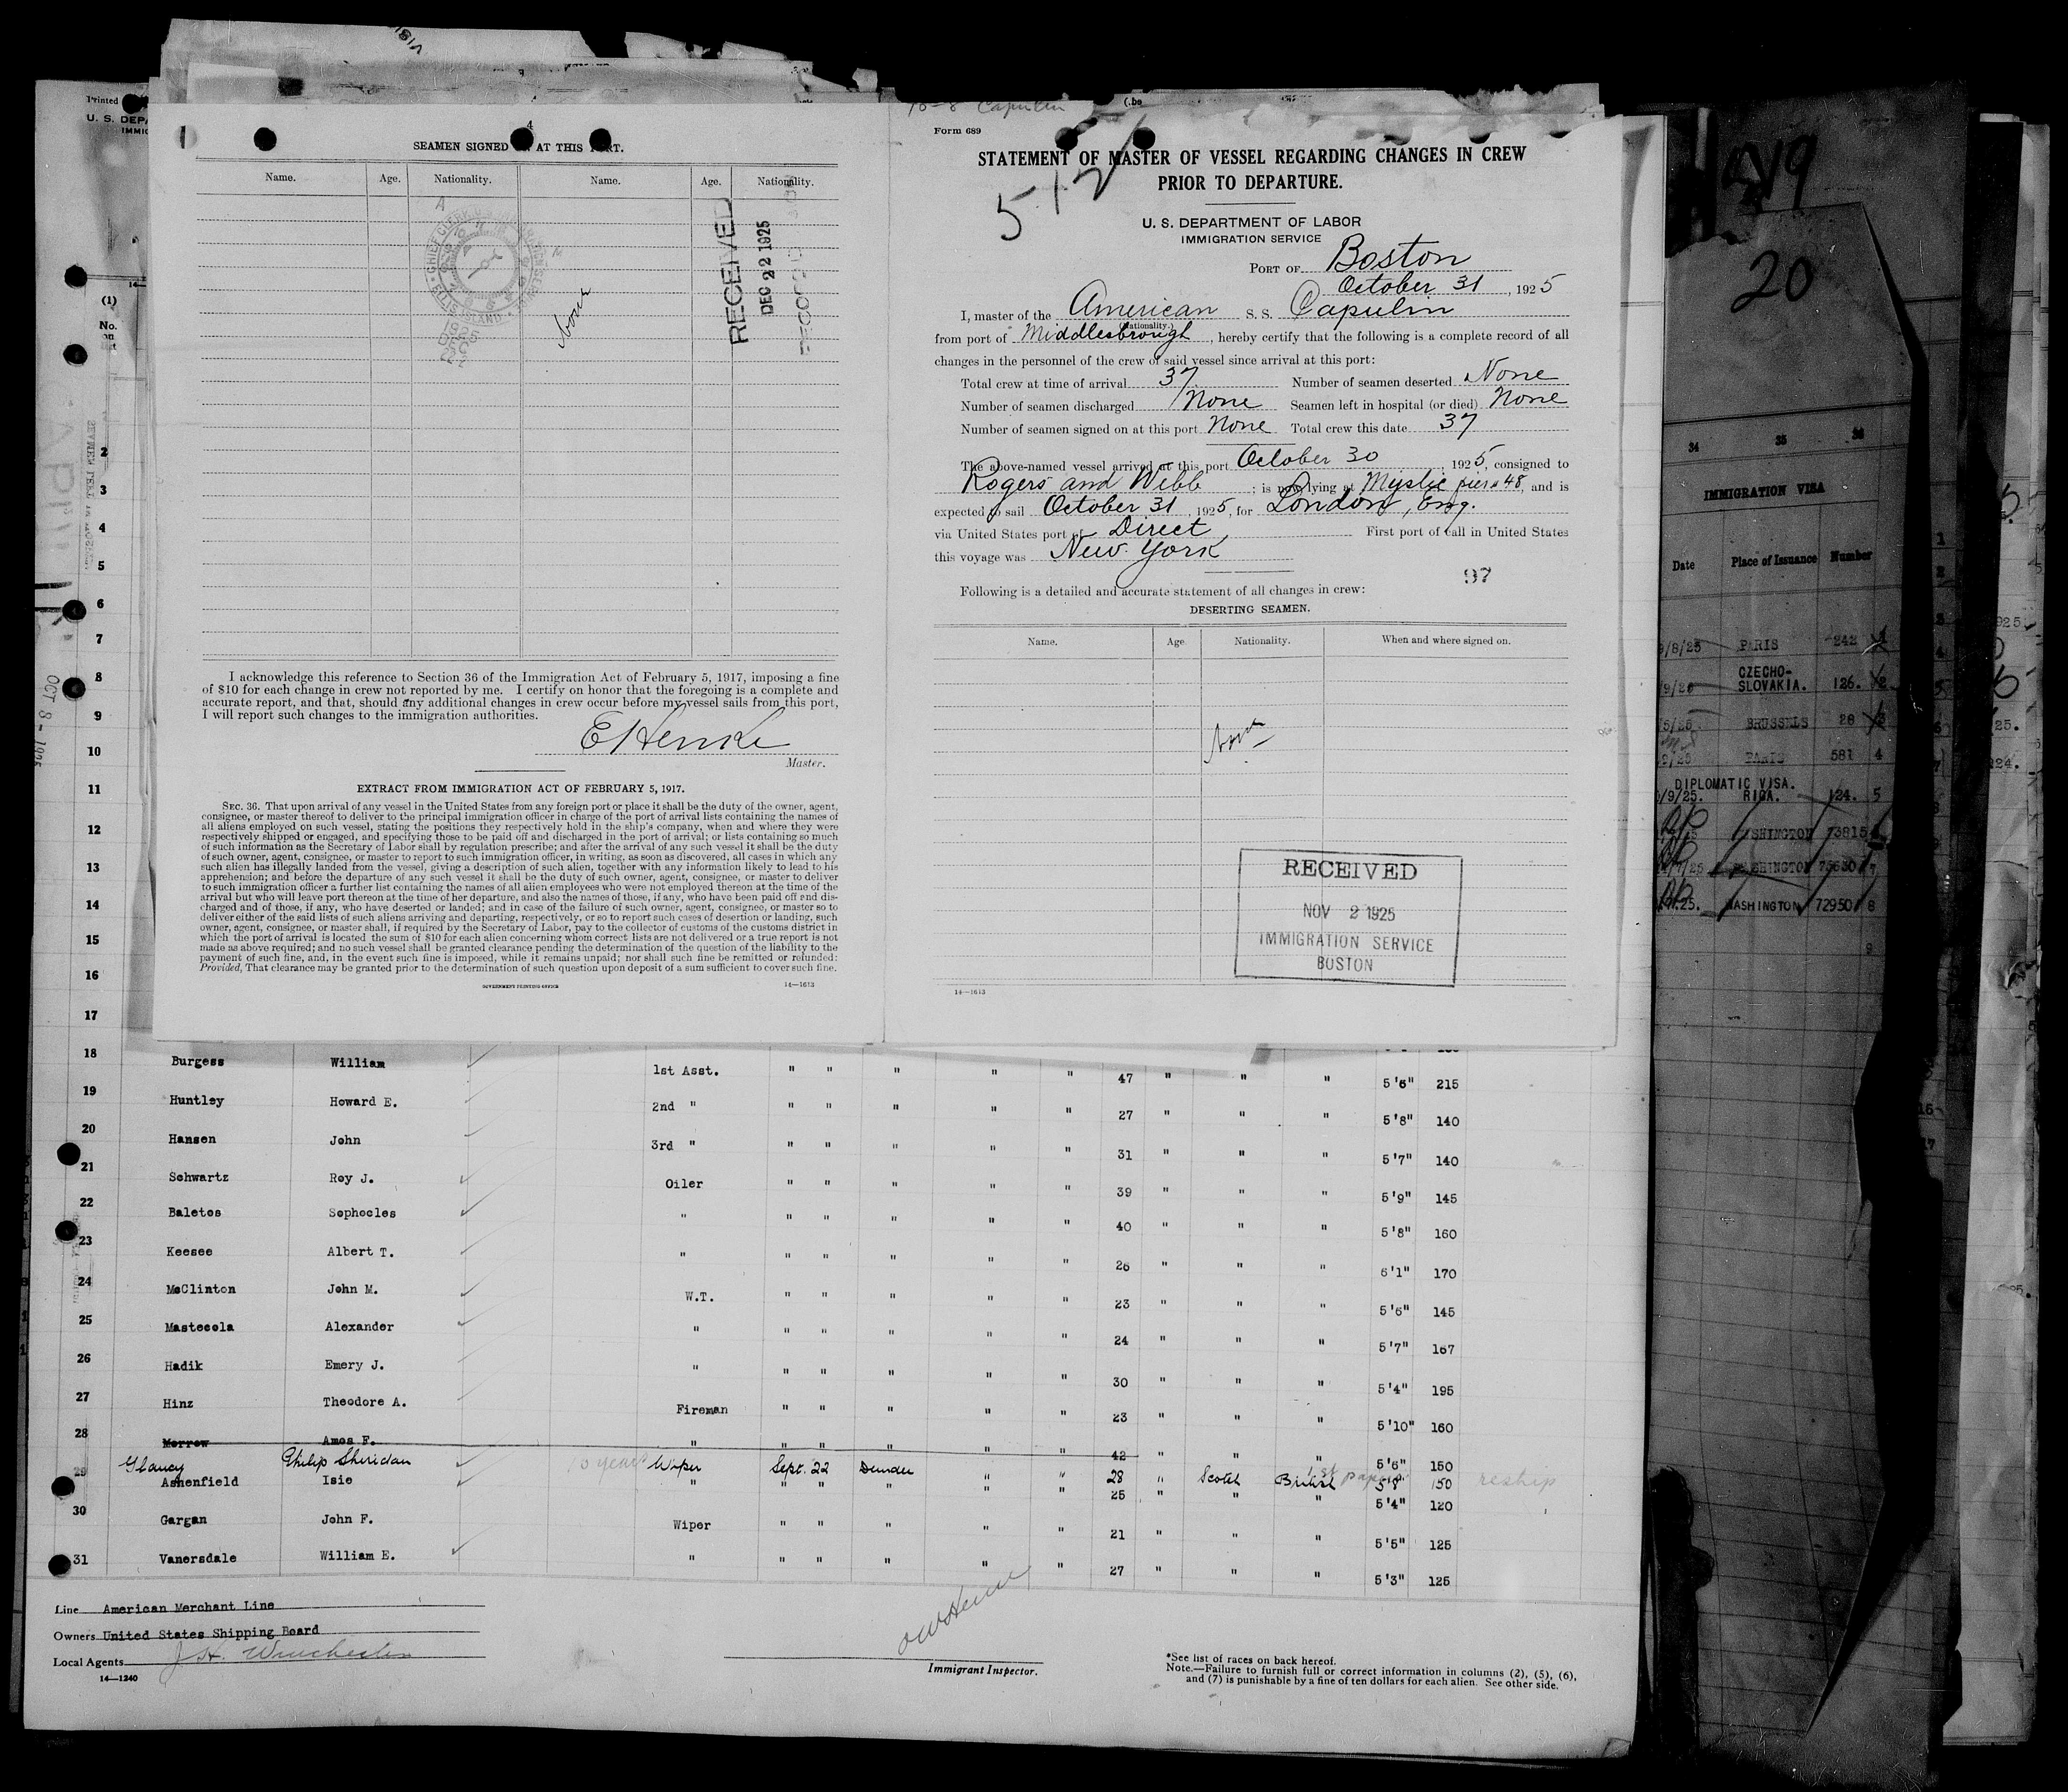 4
SEAMEN SIGNED AT THIS
Name. Age. Nationality. Name. Age. Nationality.
CHIEF CLERK
ELLIS ISLAND
1925
DEC
22
None
RECEIVED
DEC 22 1925
I acknowledge this reference to Section 36 of the Immigration Act of February 5, 1917, imposing a fine
of $10 for each change in crew not reported by me. I certify on honor that the foregoing is a complete and
accurate report, and that, should any additional changes in crew occur before my vessel sails from this port,
I will report such changes to the immigration authorities.
E Henke
Master.
EXTRACT FROM IMMIGRATION ACT OF FEBRUARY 5, 1917.
SEC. 36. That upon arrival of any vessel in the United States from any foreign port or place it shall be the duty of the owner, agent,
consignee, or master thereof to deliver to the principal immigration officer in charge of the port of arrival lists containing the names of
all aliens employed on such vessel, stating the positions they respectively hold in the ship's company, when and where they were
respectively shipped or engaged, and specifying those to be paid off and discharged in the port of arrival; or lists containing so much
of such information as the Secretary of Labor shall by regulation prescribe; and after the arrival of any such vessel it shall be the duty
of such owner, agent, consignee, or master to report to such immigration officer, in writing, as soon as discovered, all cases in which any
such alien has illegally landed from the vessel, giving a description of such alien, together with any information likely to lead to his
apprehension; and before the departure of any such vessel it shall be the duty of such owner, agent, consignee, or master to deliver
to such immigration officer a further list containing the names of all alien employees who were not employed thereon at the time of the
arrival but who will leave port thereon at the time of her departure, and also the names of those, if any, who have been paid off and dis-
charged and of those, if any, who have deserted or landed; and in case of the failure of such owner, agent, consignee, or master so to
deliver either of the said lists of such aliens arriving and departing, respectively, or so to report such cases of desertion or landing, such
owner, agent, consignee, or master shall, if required by the Secretary of Labor, pay to the collector of customs of the customs district in
which the port of arrival is located the sum of $10 for each alien concerning whom correct lists are not delivered or a true report is not
made as above required; and no such vessel shall be granted clearance pending the determination of the question of the liability to the
payment of such fine, and, in the event such fine is imposed, while it remains unpaid; nor shall such fine be remitted or refunded:
Provided, That clearance may be granted prior to the determination of such question upon deposit of a sum sufficient to cover such fine.
GOVERNMENT PRINTING OFFICE 14—1613
Capulin
Form 689
STATEMENT OF MASTER OF VESSEL REGARDING CHANGES IN CREW
PRIOR TO DEPARTURE.
512
U. S. DEPARTMENT OF LABOR
IMMIGRATION SERVICE
PORT OF Boston
October 31, 1925
I, master of the American S. S. Capulin
(Nationality.)
from port of Middlesbrough, hereby certify that the following is a complete record of all
changes in the personnel of the crew of said vessel since arrival at this port:
Total crew at time of arrival 37 Number of seamen deserted None
Number of seamen discharged None Seamen left in hospital (or died) None
Number of seamen signed on at this port None Total crew this date 37
The above-named vessel arrived at this port October 30, 1925, consigned to
Rogers and Webb; is now lying at Mystic pier 48, and is
expected to sail October 31, 1925, for London, Eng.
via United States port of Direct, First port of call in United States
this voyage was New York
97
Following is a detailed and accurate statement of all changes in crew:
DESERTING SEAMEN.
Name. Age Nationality. When and where signed on.
None
RECEIVED
NOV 2 1925
IMMIGRATION SERVICE
BOSTON
14—1613
Printed
U. S. DEP
IMMIG
(1)
No.
on
OCT 8 - 1925
2
3
4
5
6
7
8
9
10
11
12
13
14
15
16
17
18 Burgess William 1st Asst. " " " " " 47 " " " 5'6" 215
19 Huntley Howard E. 2nd " " " " " " 27 " " " 5'8" 140
20 Hansen John 3rd " " " " " " 31 " " " 5'7" 140
21 Schwartz Roy J. Oiler " " " " " 39 " " " 5'9" 145
22 Baletos Sophocles " " " " " " 40 " " " 5'8" 160
23 Keesee Albert T. " " " " " " 26 " " " 6'1" 170
24 McClinton John M. W.T. " " " " " 23 " " " 5'6" 145
25 Mastecola Alexander " " " " " " 24 " " " 5'7" 167
26 Hadik Emery J. " " " " " " 30 " " " 5'4" 195
27 Hinz Theodore A. Fireman " " " " " 23 " " " 5'10" 160
28 Morrow Amos F. " " " " " " 42 " " " 5'6" 150
Glancy Philip Sheridan 10 years Wiper Sept. 22 Dundee " " 28 " Scotch British 1st papers 5'8 150 reship
29 Ashenfield Isie " " " " " 25 " " " 5'4" 120
30 Gargan John F. Wiper " " " " " 21 " " " 5'5" 125
31 Vanersdale William E. " " " " " " 27 " " " 5'3" 125
Line American Merchant Line
Owners United States Shipping Board
Local Agents J. H. Winchester
14—1240
Immigrant Inspector.
*See list of races on back hereof.
Note.—Failure to furnish full or correct information in columns (2), (5), (6),
and (7) is punishable by a fine of ten dollars for each alien. See other side.
20
34 35 36
IMMIGRATION VISA
Date Place of Issuance Number
/8/25 PARIS 242
CZECHO-
SLOVAKIA. 126. 2
BRUSSELS 28 3
PARIS 581 4
DIPLOMATIC VISA.
/9/25. RIGA. 124. 5
WASHINGTON 73815
WASHINGTON 75630 7
WASHINGTON 72950 8
9